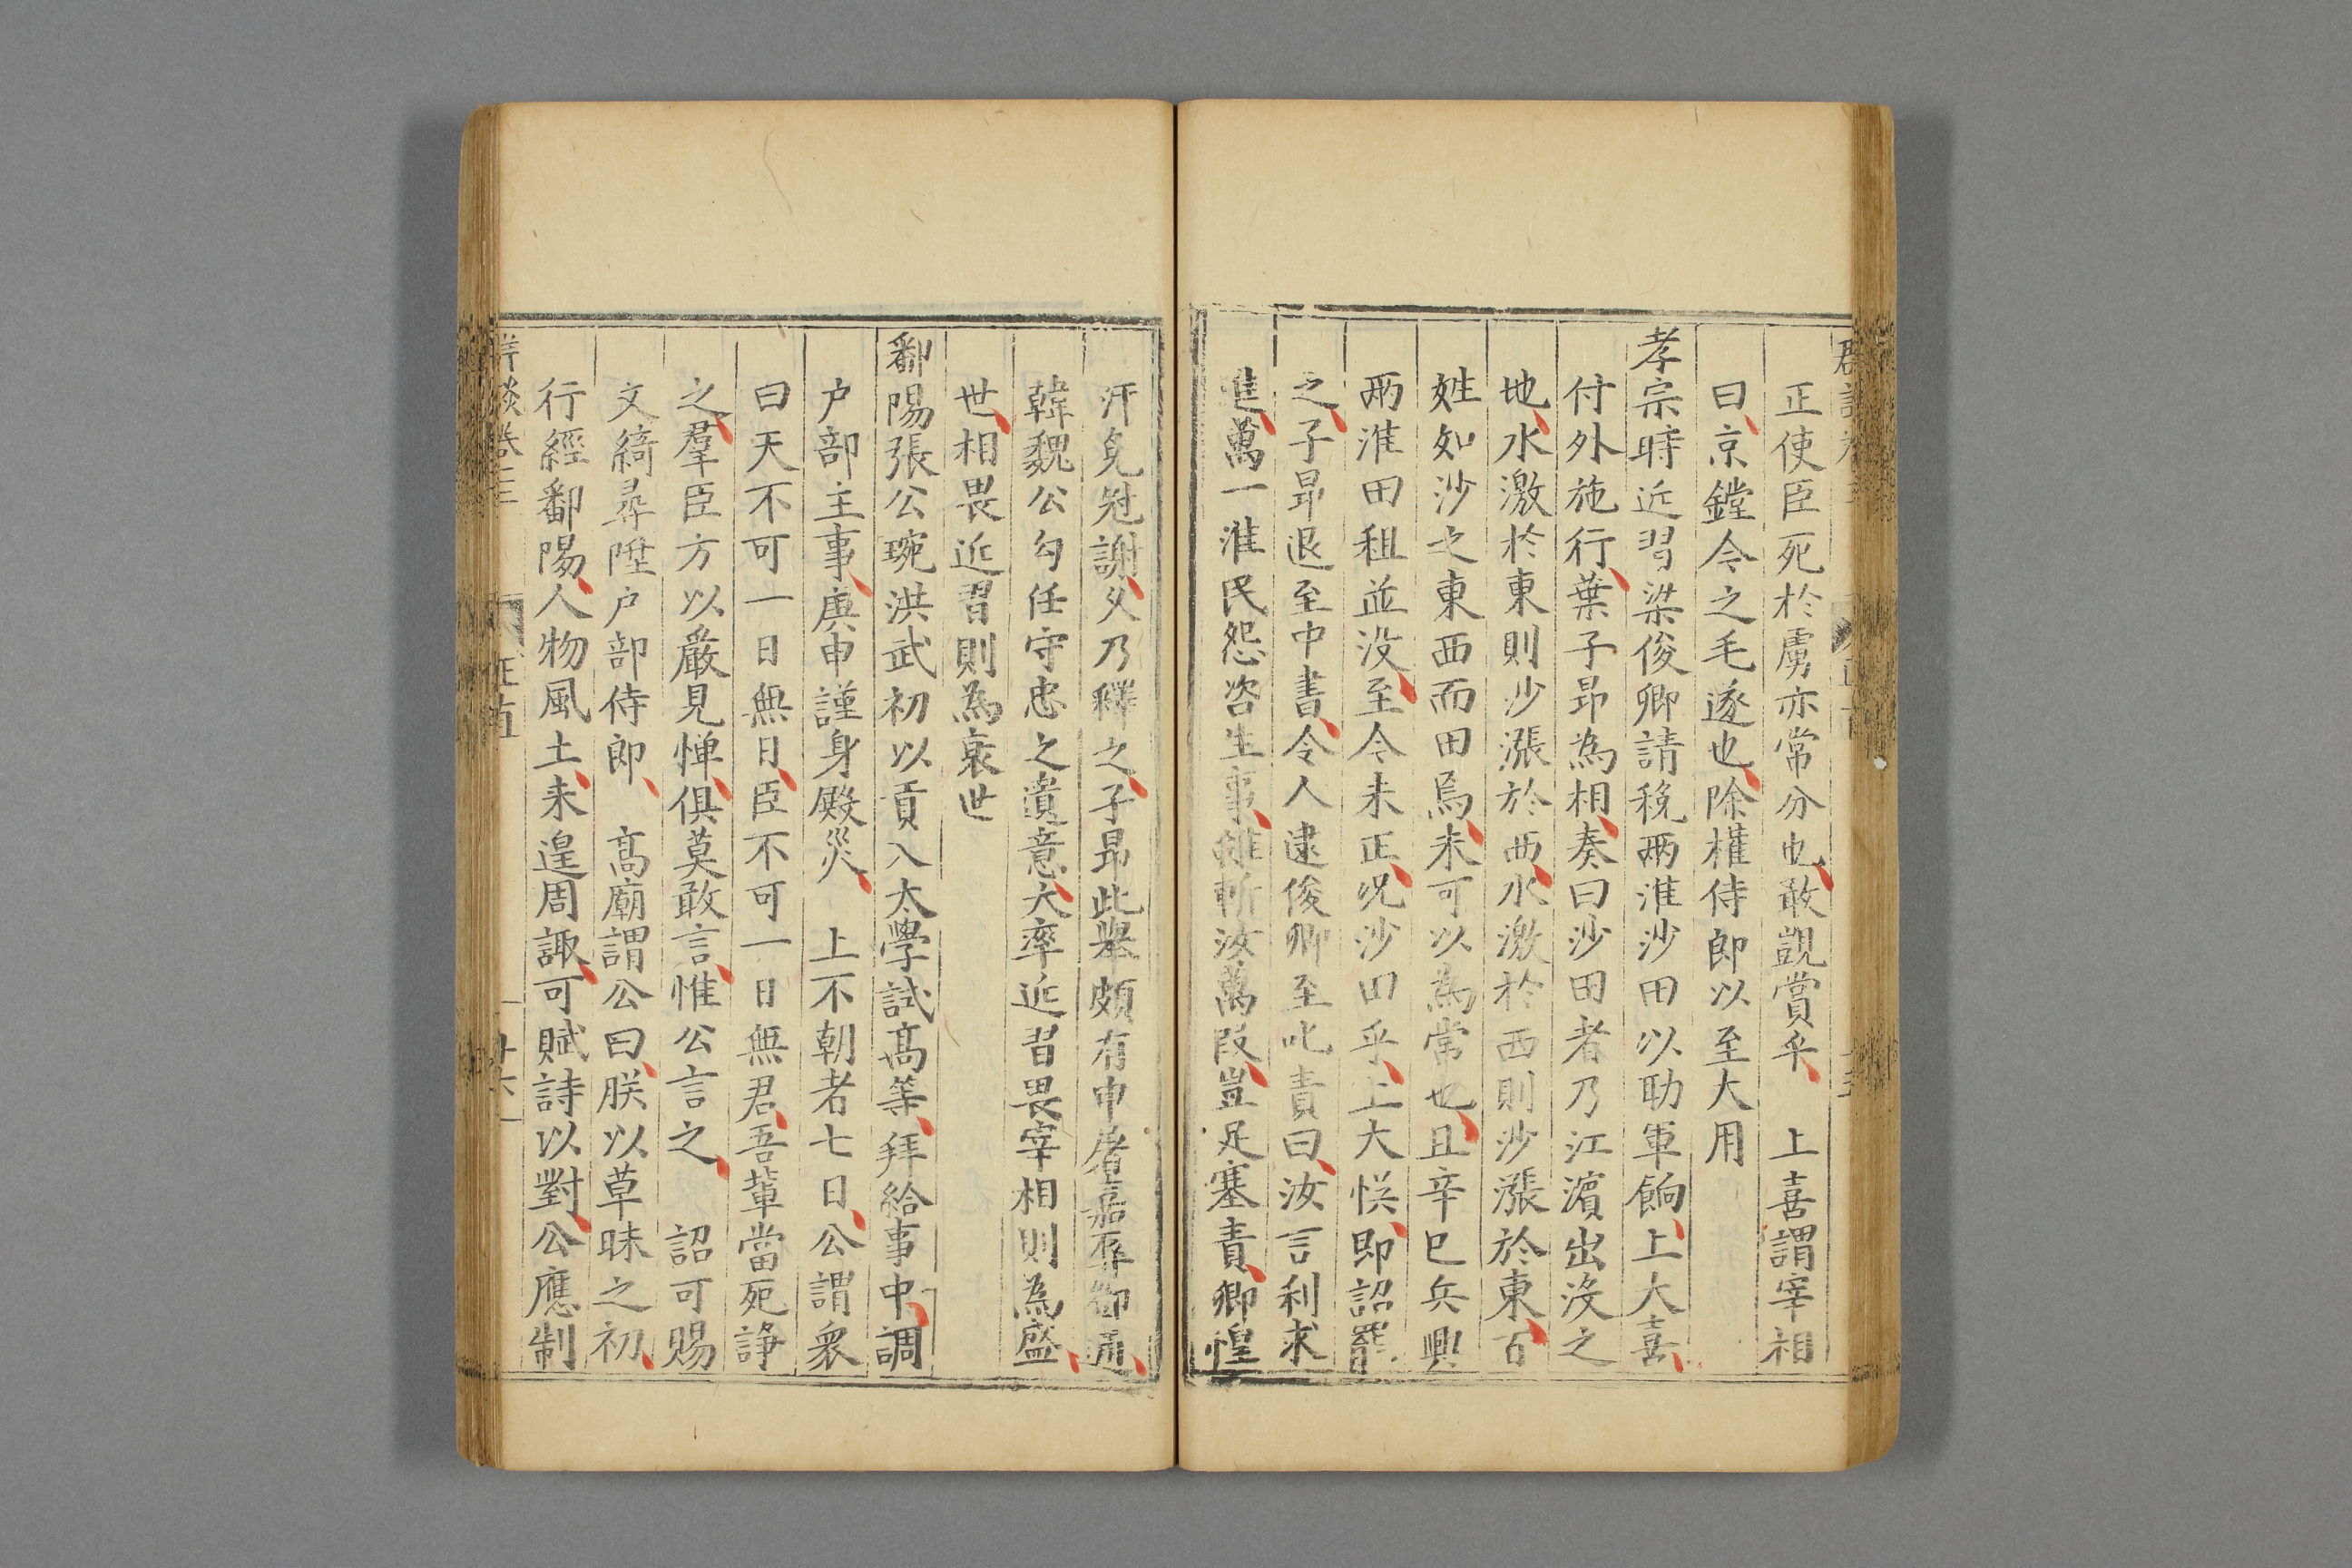 正使臣死於虜亦常分也敢覬賞乎　上喜謂宰相
曰京鏜今之毛遂也除權侍郎以至大用
孝宗時近習梁俊卿請稅兩淮沙田以助軍餉上大喜
付外施行葉子昻為相奏曰沙田者乃江濵出没之
地水激於東則沙漲於西水激於西則沙漲於東百
姓如沙之東西而田焉未可以為常也且辛巳兵興
兩淮田租並没至今未正况沙田乎上大悞即詔罷
之子昻退至中書令人逮俊卿至叱責曰汝言利求
進萬一淮民怨咨生事雖斬汝萬叚豈足塞責卿惶
汗免冠謝乆乃釋之子昻此舉頗有申屠嘉辱鄧通
韓魏公勾任守忠之遺意大率近習畏宰相則為盛
世相畏近習則為衰世
鄱陽張公琬洪武初以貢入太學試髙等拜給事中調
户部主事庚申謹身殿災　上不朝者七日公謂衆
曰天不可一日無日臣不可一日無君吾輩當死諍
之羣臣方以嚴見憚俱莫敢言惟公言之　詔可賜
文綺尋陞户部侍郎　髙廟謂公曰朕以草昧之初
行經鄱陽人物風土未遑周諏可賦詩以對公應制